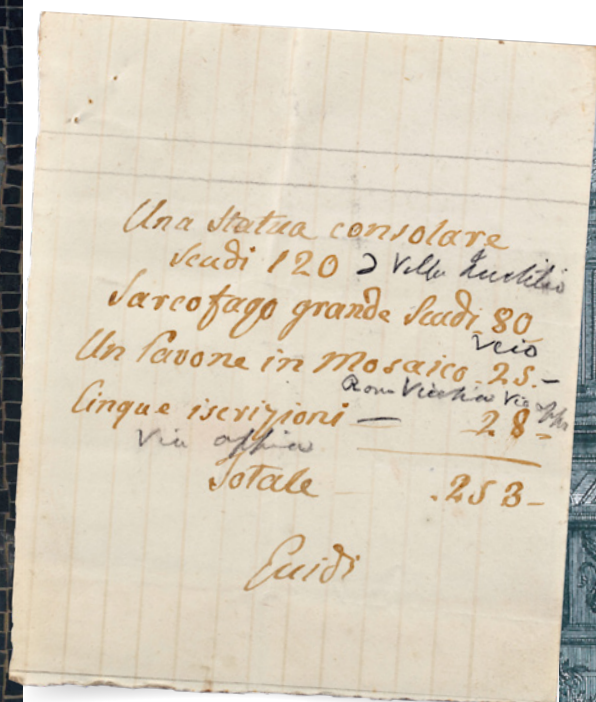 Una statua consolare
scudi 120 Villa
Sarcofago grande Scudi 80
Veio
Un Pavone in Mosaico. 25.-
Roma Vecchia Via App
Cinque iscrizioni — 28-
Via Appia
Totale .253-
Guidi